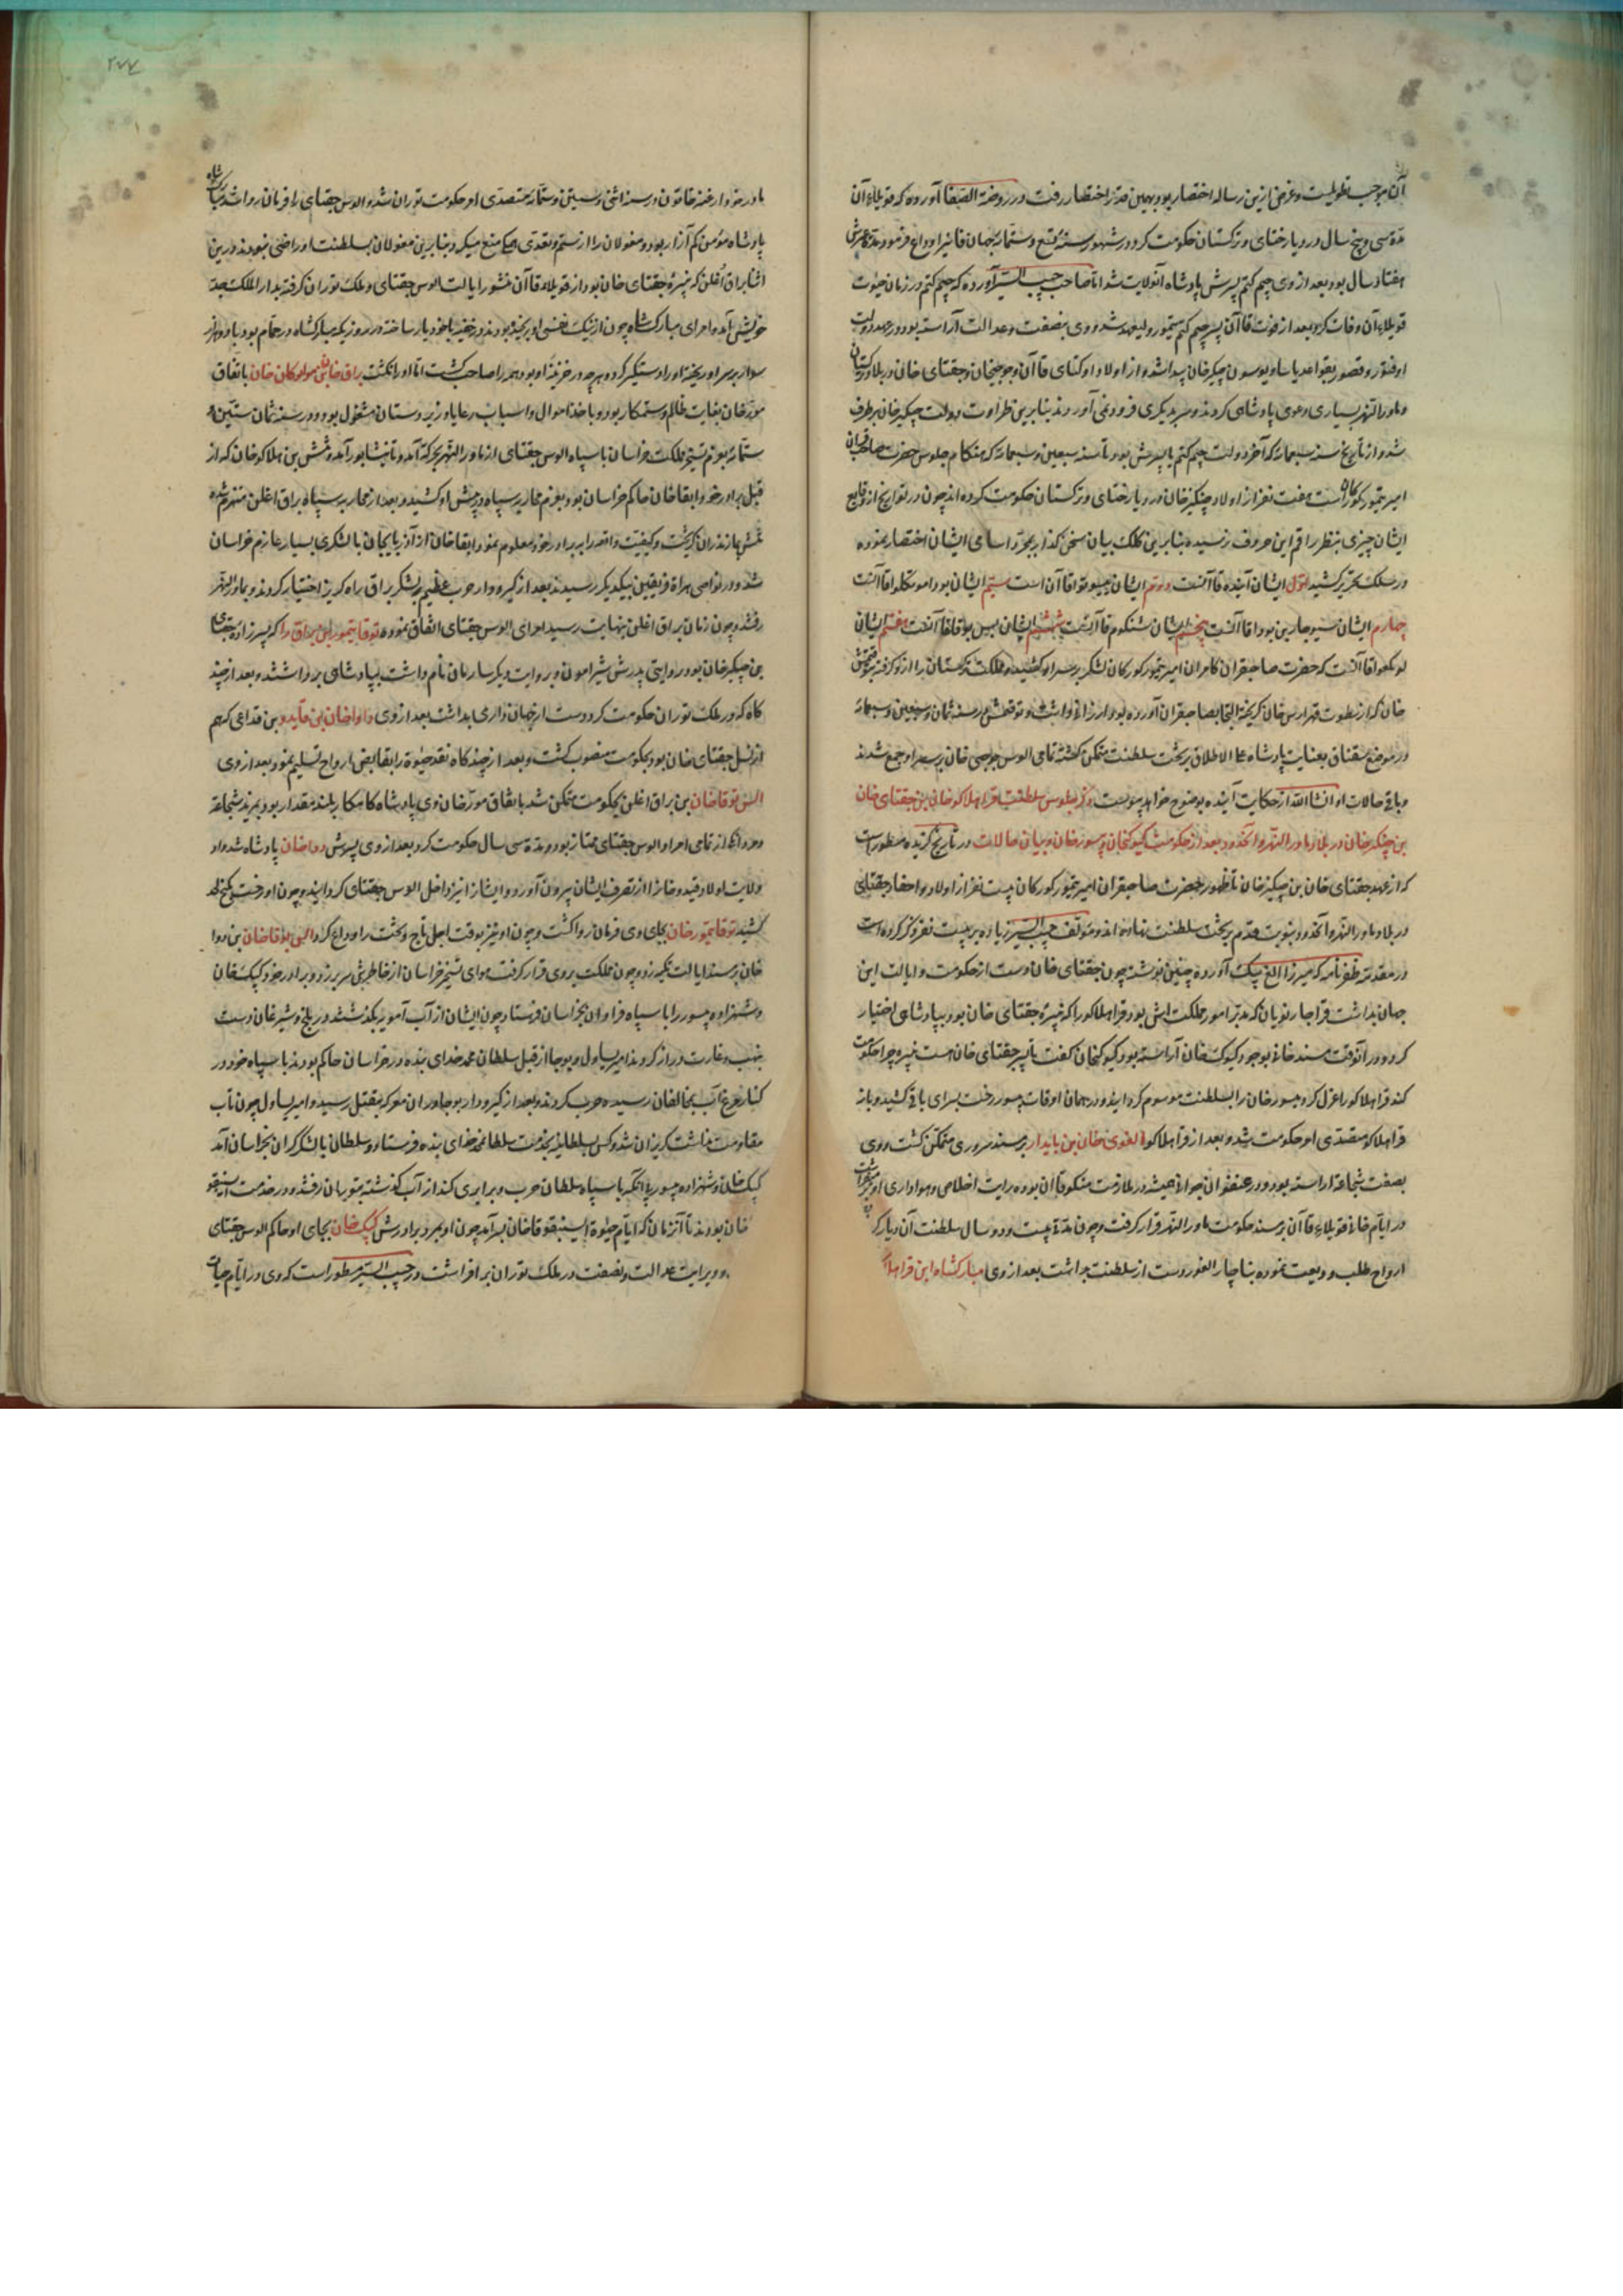 آن موجب تطویلست و غرض ازین رساله اختصار بود بهمین قدر اختصار رفت و در روضة الصفا آورده که قوبیلاء آن
مدة سی و پنج سال در دیار ختای و ترکستان حکومت کرد و در شهور سنه تسع و ستمائه جهان فانیرا وداع فرمود مدة عمرش
هفتاد سال بود بعد از وی جیم کتم پسرش پادشاه آنولایت شد اما صاحب حبیب السیر آورده که جیم کتم در زمان حیوت
قوبیلاء آن وفات کرد بعد از فوت قاآن پسر جیم کتم تیمور ولیعهد شد و وی بنصفت و عدالت آراسته بود و در عهد دولت
او فتور و قصور بقواعد یاسا و یوسون چنکیز خان پیدا شد و از اولاد اوکتای قاآن و جوجیخان و جقتای خان در بلاد ترکستان
و ماوراء النهر بسیاری دعوی پادشاهی کردند و سر بدیکری فرو نمی آوردند بنابرین طراوت دولت چنکیز خان برطرف
شد و از تاریخ سنه سبعمائه که آخر دولت جیم کتم یا پسرش بود تا سنه سبعین و سبعمائه که هنکام جلوس حضرت صاحبقران
امیر تیمور کورکان است هفت نفر از اولاد چنکیز خان در دیار ختای و ترکستان حکومت کرده اند چون در تواریخ از وقایع
ایشان چیزی بنظر راقم این حروف نرسیده بنابرین کلک بیان سخن کذار بمجرد اسامی ایشان اختصار نموده
در سلک تحریر کشید اول ایشان آنیده قاآنست دوم ایشان جیبوتو اقاآن است سیم ایشان بوداموتکلوا قاآنست
چهارم ایشان سیوهارین بودا قاآنست پنجم ایشان تنکوم قاآنست ششم ایشان ایس بوقا قاآنست هفتم ایشان
لونکهوا قاآنست که حضرت صاحبقران کامران امیر تیمور کورکان لشکر بر سر او کشیده و مملکت ترکستان را از او کرفته بتوقتمش
خان که از سطوت قهر ارس خان کریخته التجا بصاحبقران آورده بود ارزانی داشت و توقتمش در سنه ثمان و سبعین و سبعمائه
در موضع سقناق بعنایت پادشاه علی الاطلاق بر تخت سلطنت متمکن کشته تمامی الوس جوجی خان بر سر او جمع شدند
و باقی حالات او انشاء الله از حکایت آینده بوضوح خواهد پیوست ذکر جلوس سلطنت قرا هلاکو خان بن جقتای خان
بن چنکیز خان در بلاد ماوراء النهر و آنحدود بعد از حکومت کیوکخان و یسور خان و بیان حالات در تاریخ کزیده مسطور است
که از عهد جقتای خان بن چنکیز خان تا ظهور حضرت صاحبقران امیر تیمور کورکان بیست نفر از اولاد و احفاد جقتای
در بلاد ماوراء النهر و آنحدود بنوبت قدم بر تخت سلطنت نهاده اند و مؤلف حبیب السیر زیاده بر بیست نفر ذکر کرده است
در مقدمه ظفرنامه که میرزا الغ بیک آورده چنین نوشته چون جقتای خان دست از حکومت و ایالت این
جهان بداشت قراجار نویان که مدبر امور مملکت اش بود قرا هلاکو را که نبیره جقتای خان بود بپادشاهی اختیار
کرد و در آنوقت مسند خانی بوجود کیوک خان آراسته بود کیوکخان کفت با پسر جقتای خان هست نبیره چرا حکومت
کند قرا هلاکو را عزل کرد و یسور خان را بسلطنت موسوم کردانید و در همان اوقات یسور رخت بسرای باقی کشید و باز
قرا هلاکو متصدی امر حکومت شد و بعد از قرا هلاکو الغوی خان بن بایدار بر مسند سروری متمکن کشت و وی
بصفت شجاعت آراسته بود و در عنفوان جوانی همیشه در ملازمت منکوقاآن بوده رایت اخلاص و هواداری او بر می افراشت
در ایام خانی قوبیلاء قاآن بر مسند حکومت ماوراء النهر قرار کرفت و چون مدة بیست و دو سال سلطنت آن دیار کرد
ارواح طلب ودیعت نموده بناچار الغو دست از سلطنت بداشت بعد از وی مبارکشاه ابن قرا هلا
۲۷۷
با در خود ارغنه خاتون در سنه اثنی و ستین و ستمائه متصدی امر حکومت توران شد و الوس جقتای را فرمان روا شد مبارکشاه
پادشاه مؤمن کم آزار بود و مغولان را از ستم و تعدی بهم منع میکرد و بنابرین مغولان بسلطنت او راضی نبودند درین
اثنا براق اغلن که نبیره جقتای خان بود از قوبیلاء قاآن منشور ایالت الوس جقتای و ملک توران کرفته بدار الملک جد
خویش آمد و امرای مبارکشاه چون از نیک نفسی او رنجیده بودند در خفیه با خود یار ساخته در روزیکه مبارکشاه در حمام بود با دو هزار
سوار بر سر او ریخته او را دستکیر کرد و هر چه در خزینة او بود همه را صاحب کشت اما او را نکشت براق خان بن مواتوکان خان باتفاق
مورخان بغایت ظالم و ستمکار بود و با اخذ اموال و اسباب رعایا و زیردستان مشغول بود و در سنه ثمان ستین و
ستمائه بعزم تسخیر مملکت خراسان با سپاه الوس جقتای از ماوراء النهر بحرکت آمد و تا نیشابور آمد و تبشین بن هلاکو خان که از
قبل برادر خود ابقا خان حاکم خراسان بود بعزم محاربه سپاه در پیش او کشید و بعد از محاربه سپاه براق اغلن منهزم شده
تبشین بمازندران کریخت و کیفیت واقعه را ببرادر خود معلوم نمود ابقا خان از آذربایجان با لشکری بسیار عازم خراسان
شد و در نواحی هراة فریقین بیکدیکر رسیدند بعد از کیر و دار حرب عظیم لشکر براق راه کریز اختیار کردند و بماوراء النهر
رفتند و چون زمان براق اغلن بنهایت رسید امرای الوس جقتای اتفاق نموده توقا تیمور بن براق را که پسرزاده جقتای
بن چنکیز خان بود و در روایتی پدرش شیرامون و بروایت دیکر ساربان نام داشت بپادشاهی برداشتند و بعد از چند
کاه که در ملک توران حکومت کرد دست از جهان داری بداشت بعد از وی داوا خان بن قایدو بن قداغی که هم
از نسل جقتای خان بود بحکومت منصوب کشت و بعد از چند کاه نقد حیوة را بقابض ارواح تسلیم نمود بعد از وی
الس توقا خان بن براق اغلن بحکومت متمکن شد باتفاق مورخان وی پادشاه کامکار بلند مقدار بود بمزید شجاعت
و مردانکی از تمامی امرا و الوس جقتای ممتاز بود و مدة سی سال حکومت کرد بعد از وی پسرش دوا خان پادشاه شد و او
ولایت اولاد قیدو خان را از تصرف ایشان بیرون آورد و ایشان را نیز داخل الوس جقتای کردانید و چون او رخت بکنج لحد
کشید توقا تیمور خان بجای وی فرمان روا کشت و چون او نیز بوقت اجل تاج و تخت را وداع کرد الس بوقا خان بن دوا
خان بر مسند ایالت تکیه زد و چون مملکت بر وی قرار کرفت هوای تسخیر خراسان از خاطرش سر برزد و برادر خود کپک خان
و شهزاده یسور را با سپاه فراوان بخراسان فرستاد چون ایشان از آب آمویه بکذشتند در بلخ و شبرغان دست
بنهب و غارت دراز کردند امیر یساول و بوجا از قبل سلطان محمد خدای بنده در خراسان حاکم بودند با سپاه خود در
کنار مرغاب بمخالفان رسیده حرب کردند و بعد از کیر و دار بوجا در آن معرکه بقتل رسید و امیر یساول چون تاب
مقاومت نداشت کریزان شد و کس بطلب بخدمت سلطان محمد خدای بنده فرستاد و سلطان با لشکر کران بخراسان آمد
کپک خان و شهزاده یسور بی آنکه با سپاه سلطان حرب و برابری کند از آب کذشته بتوران رفتند و در خدمت ایسنبوقا
خان بودند تا آنزمان که ایام حیوة ایسنبوقا خان بسر آمد چون او بمرد برادرش کپک خان بجای او حاکم الوس جقتای
و وی رایت عدالت و نصفت در ملک توران بر افراشت و در حبیب السیر مسطور است که وی در ایام حیات